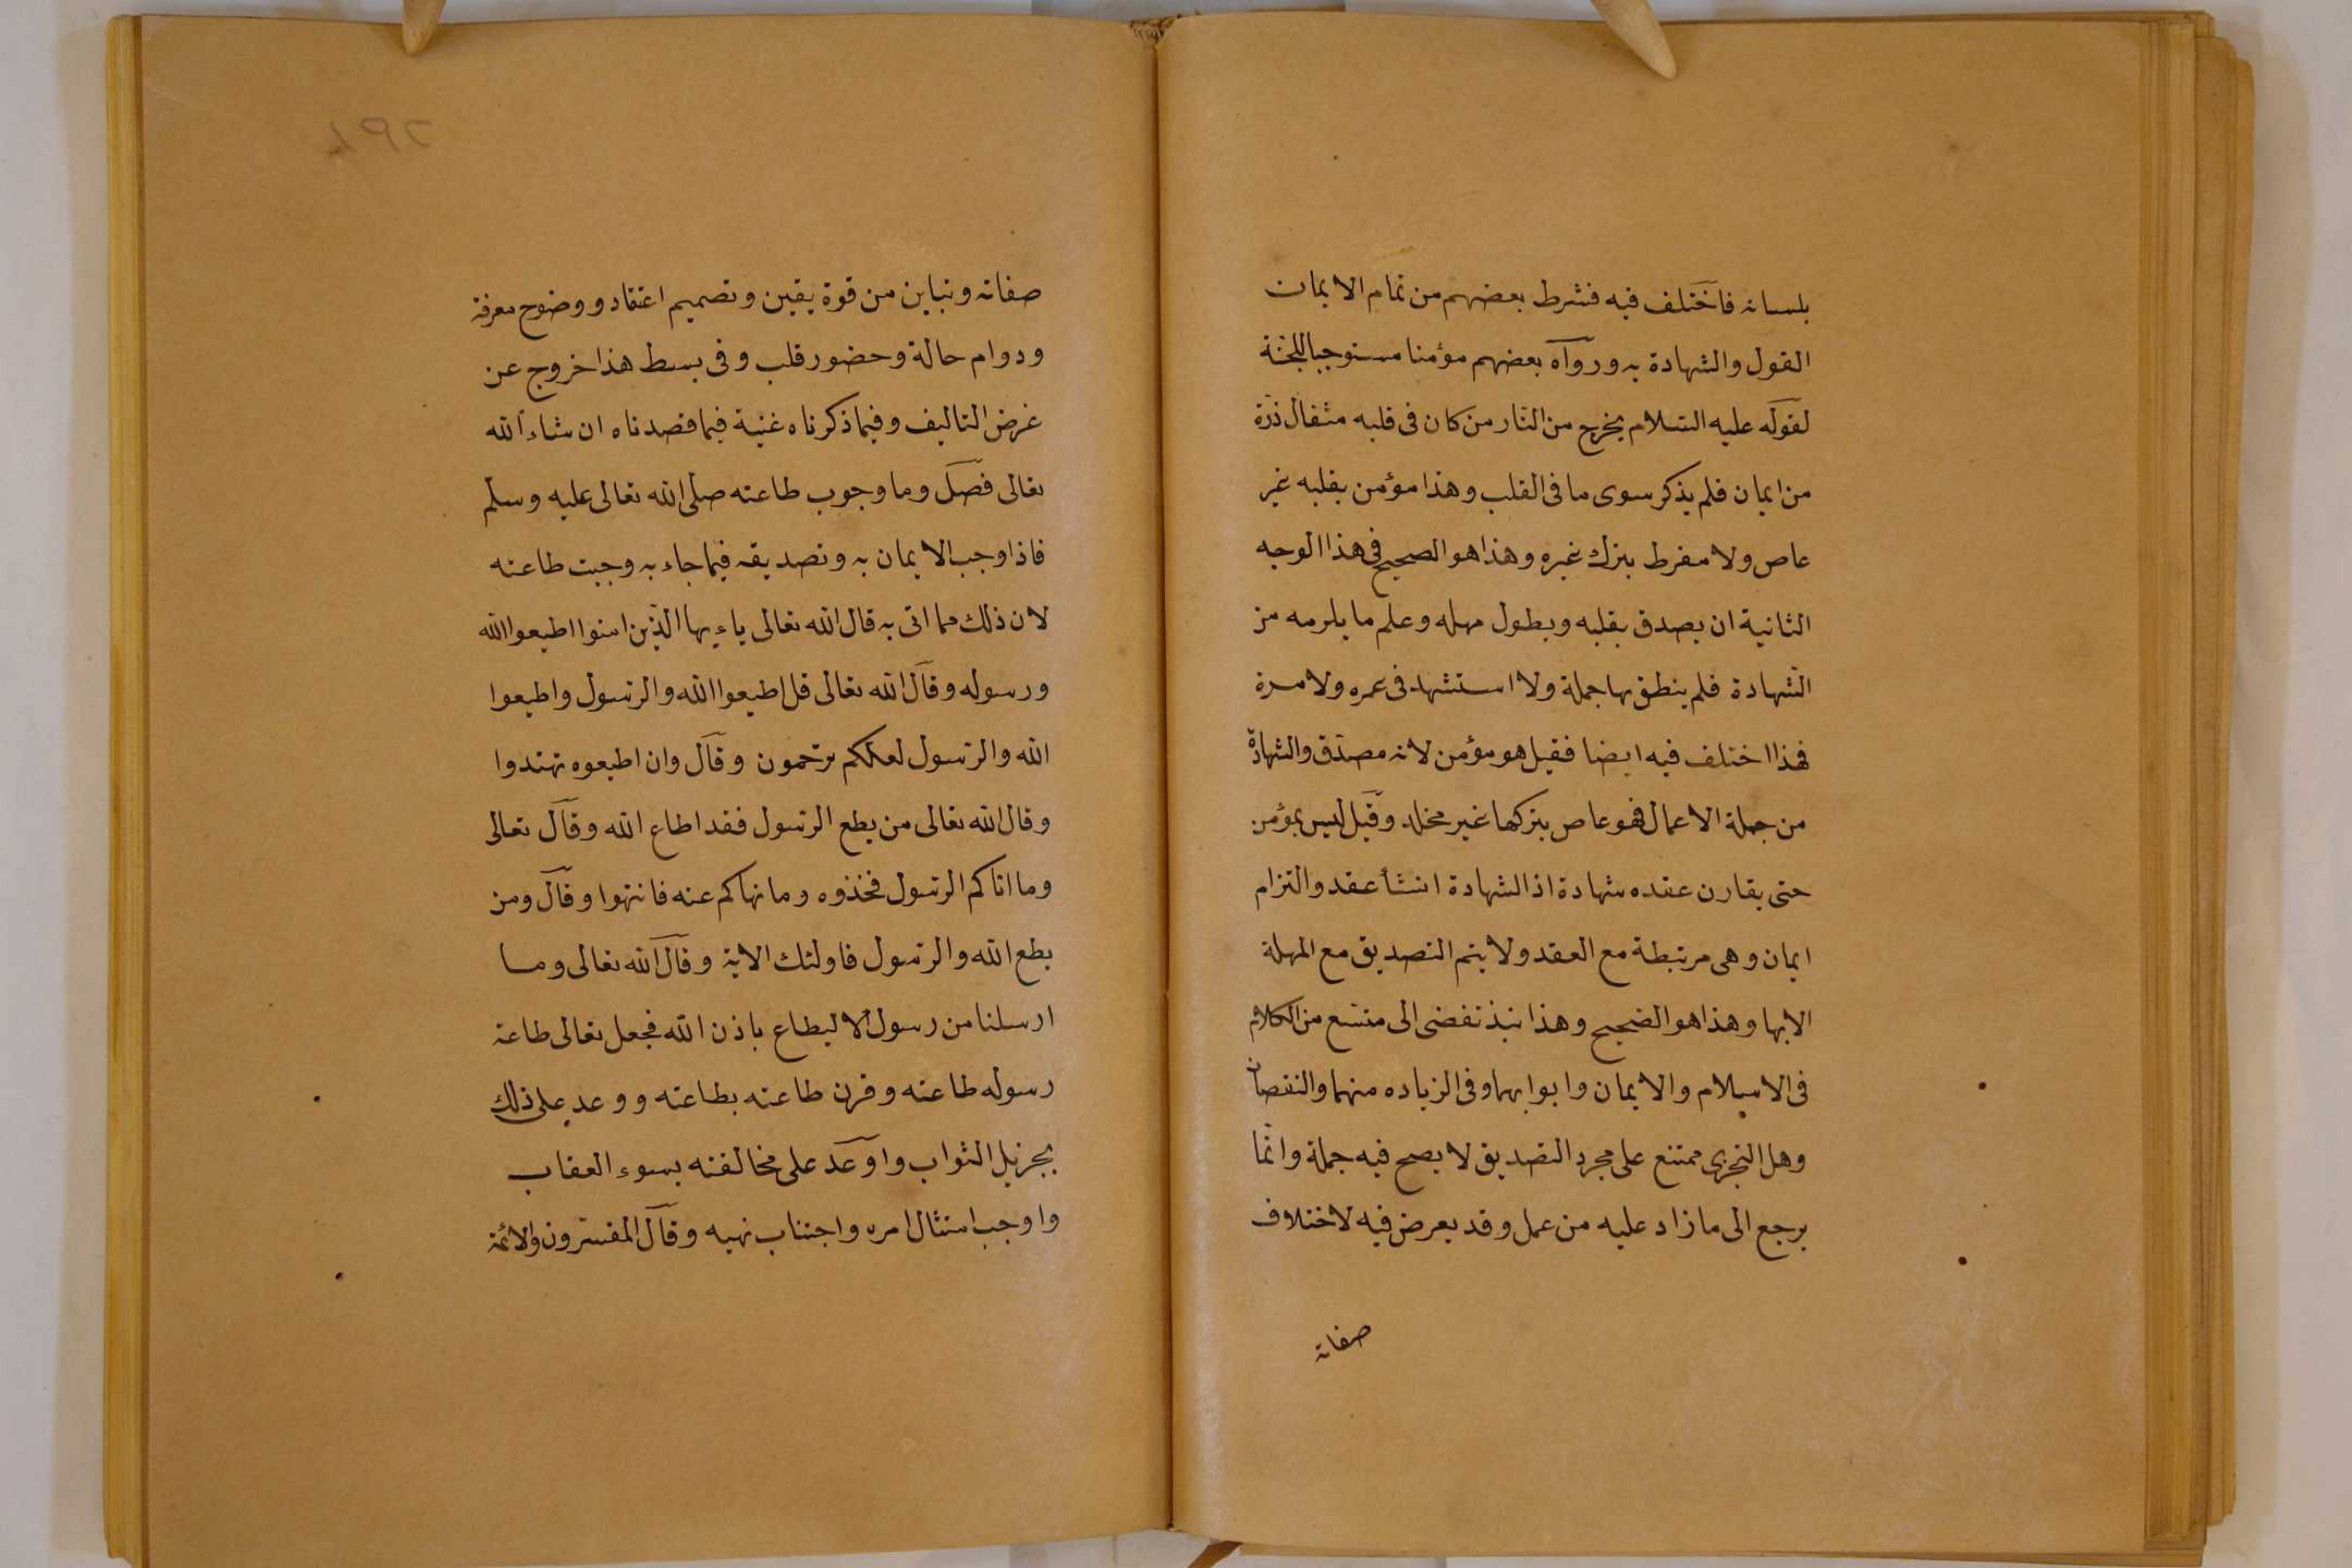 بلسانه فاختلف فيه فشرط بعضهم من تمام الايمان
القول والشهادة به وروآه بعضهم مؤمنا مستوجبا للجنة
لقوله عليه السلام يخرج من النار من كان فى قلبه مثقال ذرة
من ايمان فلم يذكر سوى ما فى القلب وهذا مؤمن بقلبه غير
عاص ولا مفرط بترك غيره وهذا هو الصحيح فى هذا الوجه
الثانية ان يصدق بقلبه ويطول مهله وعلم ما يلرمه من
الشهادة فلم ينطق بها جملة ولا استشهد فى عمره ولا مرة
فهذا اختلف فيه ايضا فقيل هو مؤمن لانه مصدق والشهادة
من جملة الاعمال فهو عاص بتركها غير مخلد وقيل ليس بمؤمن
حتى يقارن عقده شهادة اذ الشهادة انشأ عقد والتزام
ايمان وهى مرتبطة مع العقد ولا يتم التصديق مع المهلة
الا بها وهذا هو الصحيح وهذا نبذ تفضى الى متسع من الكلام
فى الاسلام والايمان وابوابهما وفى الزياده منهما والنقصان
وهل التجزى ممتنع على مجرد التصديق لا يصح فيه جملة وانما
يرجع الى ما زاد عليه من عمل وقد يعرض فيه لاختلاف
صفاته
صفاته وتباين من قوة يقين وتصميم اعتقاد ووضوح معرفة
ودوام حالة وحضور قلب وفى بسط هذا خروج عن
غرض التاليف وفيما ذكرناه غنية فيما قصدناه ان شاء الله
تعالى فصل وما وجوب طاعته صلى الله تعالى عليه وسلم
فاذا وجب الايمان به وتصديقه فيما جاء به وجبت طاعته
لان ذلك مما اتى به قال الله تعالى ياءيها الذين امنوا اطيعوا الله
ورسوله وقال الله تعالى قل اطيعوا الله والرسول واطيعوا
الله والرسول لعلكم ترحمون وقال وان اطيعوه تهتدوا
وقال الله تعالى من يطع الرسول فقد اطاع الله وقال تعالى
وما اتاكم الرسول فخذوه وما نهاكم عنه فانتهوا وقال ومن
يطع الله والرسول فاولئك الاية وقال الله تعالى وما
ارسلنا من رسول الا ليطاع باذن الله فجعل تعالى طاعة
رسوله طاعته وقرن طاعته بطاعته ووعد على ذلك
بجزيل الثواب واوعد على مخالفته بسوء العقاب
واوجب امتثال امره واجتناب نهيه وقال المفسرون والائمة